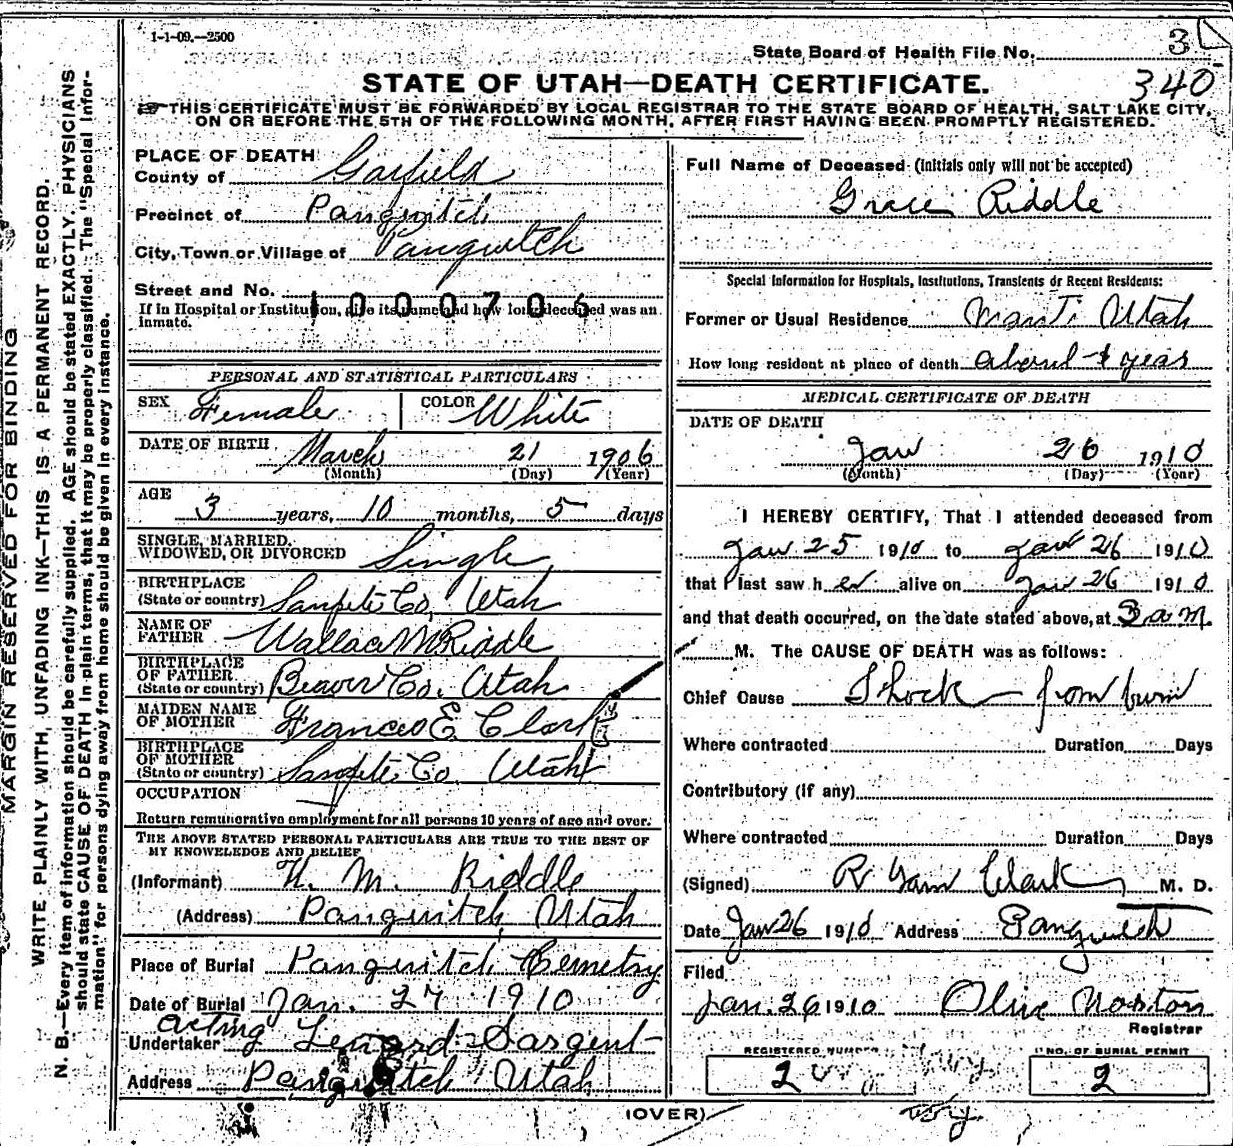 1-1-09.—2500
State Board of Health File No. 3
340
STATE OF UTAH—DEATH CERTIFICATE.
THIS CERTIFICATE MUST BE FORWARDED BY LOCAL REGISTRAR TO THE STATE BOARD OF HEALTH, SALT LAKE CITY,
ON OR BEFORE THE 5TH OF THE FOLLOWING MONTH, AFTER FIRST HAVING BEEN PROMPTLY REGISTERED.
MARGIN RESERVED FOR BINDING
WRITE PLAINLY WITH UNFADING INK—THIS IS A PERMANENT RECORD.
N. B.—Every item of information should be carefully supplied. AGE should be stated EXACTLY. PHYSICIANS
should state CAUSE OF DEATH in plain terms, that it may be properly classified. The "Special Infor-
mation" for persons dying away from home should be given in every instance.
PLACE OF DEATH
County of Garfield
Precinct of Panguitch
City, Town or Village of Panguitch
Street and No.
1000706
If in Hospital or Institution, give its name and how long deceased was an
inmate.
PERSONAL AND STATISTICAL PARTICULARS
SEX Female COLOR White
DATE OF BIRTH March 21 1906
(Month) (Day) (Year)
AGE
3 years, 10 months, 5 days
SINGLE, MARRIED,
WIDOWED, OR DIVORCED Single
BIRTHPLACE
(State or country) Sanpete Co. Utah
NAME OF
FATHER Wallace M Riddle
BIRTHPLACE
OF FATHER
(State or country) Beaver Co. Utah
MAIDEN NAME
OF MOTHER Frances E. Clark
BIRTHPLACE
OF MOTHER
(State or country) Sanpete Co. Utah
OCCUPATION
Return remunerative employment for all persons 10 years of age and over.
THE ABOVE STATED PERSONAL PARTICULARS ARE TRUE TO THE BEST OF
MY KNOWELEDGE AND BELIEF
(Informant) W. M. Riddle
(Address) Panguitch, Utah
Place of Burial Panguitch Cemetry
Date of Burial Jan. 27 1910
acting
Undertaker Lenard Sargent
Address Panguitch Utah
Full Name of Deceased (initials only will not be accepted)
Grace Riddle
Special Information for Hospitals, Institutions, Transients or Recent Residents:
Former or Usual Residence Manti Utah
How long resident at place of death about 1 year
MEDICAL CERTIFICATE OF DEATH
DATE OF DEATH
Jan 26 1910
(Month) (Day) (Year)
I HEREBY CERTIFY, That I attended deceased from
Jan 25 1910 to Jan 26 1910
that I last saw her alive on Jan 26 1910
and that death occurred, on the date stated above, at 3 a m.
M. The CAUSE OF DEATH was as follows:
Chief Cause Shock from burn
Where contracted Duration Days
Contributory (if any)
Where contracted Duration Days
(Signed) R Garn Clark M. D.
Date Jan 26 1910 Address Panguitch
Filed
Jan. 26 1910 Olive Norton
Registrar
REGISTERED NUMBER
2
NO. OF BURIAL PERMIT
2
(OVER)